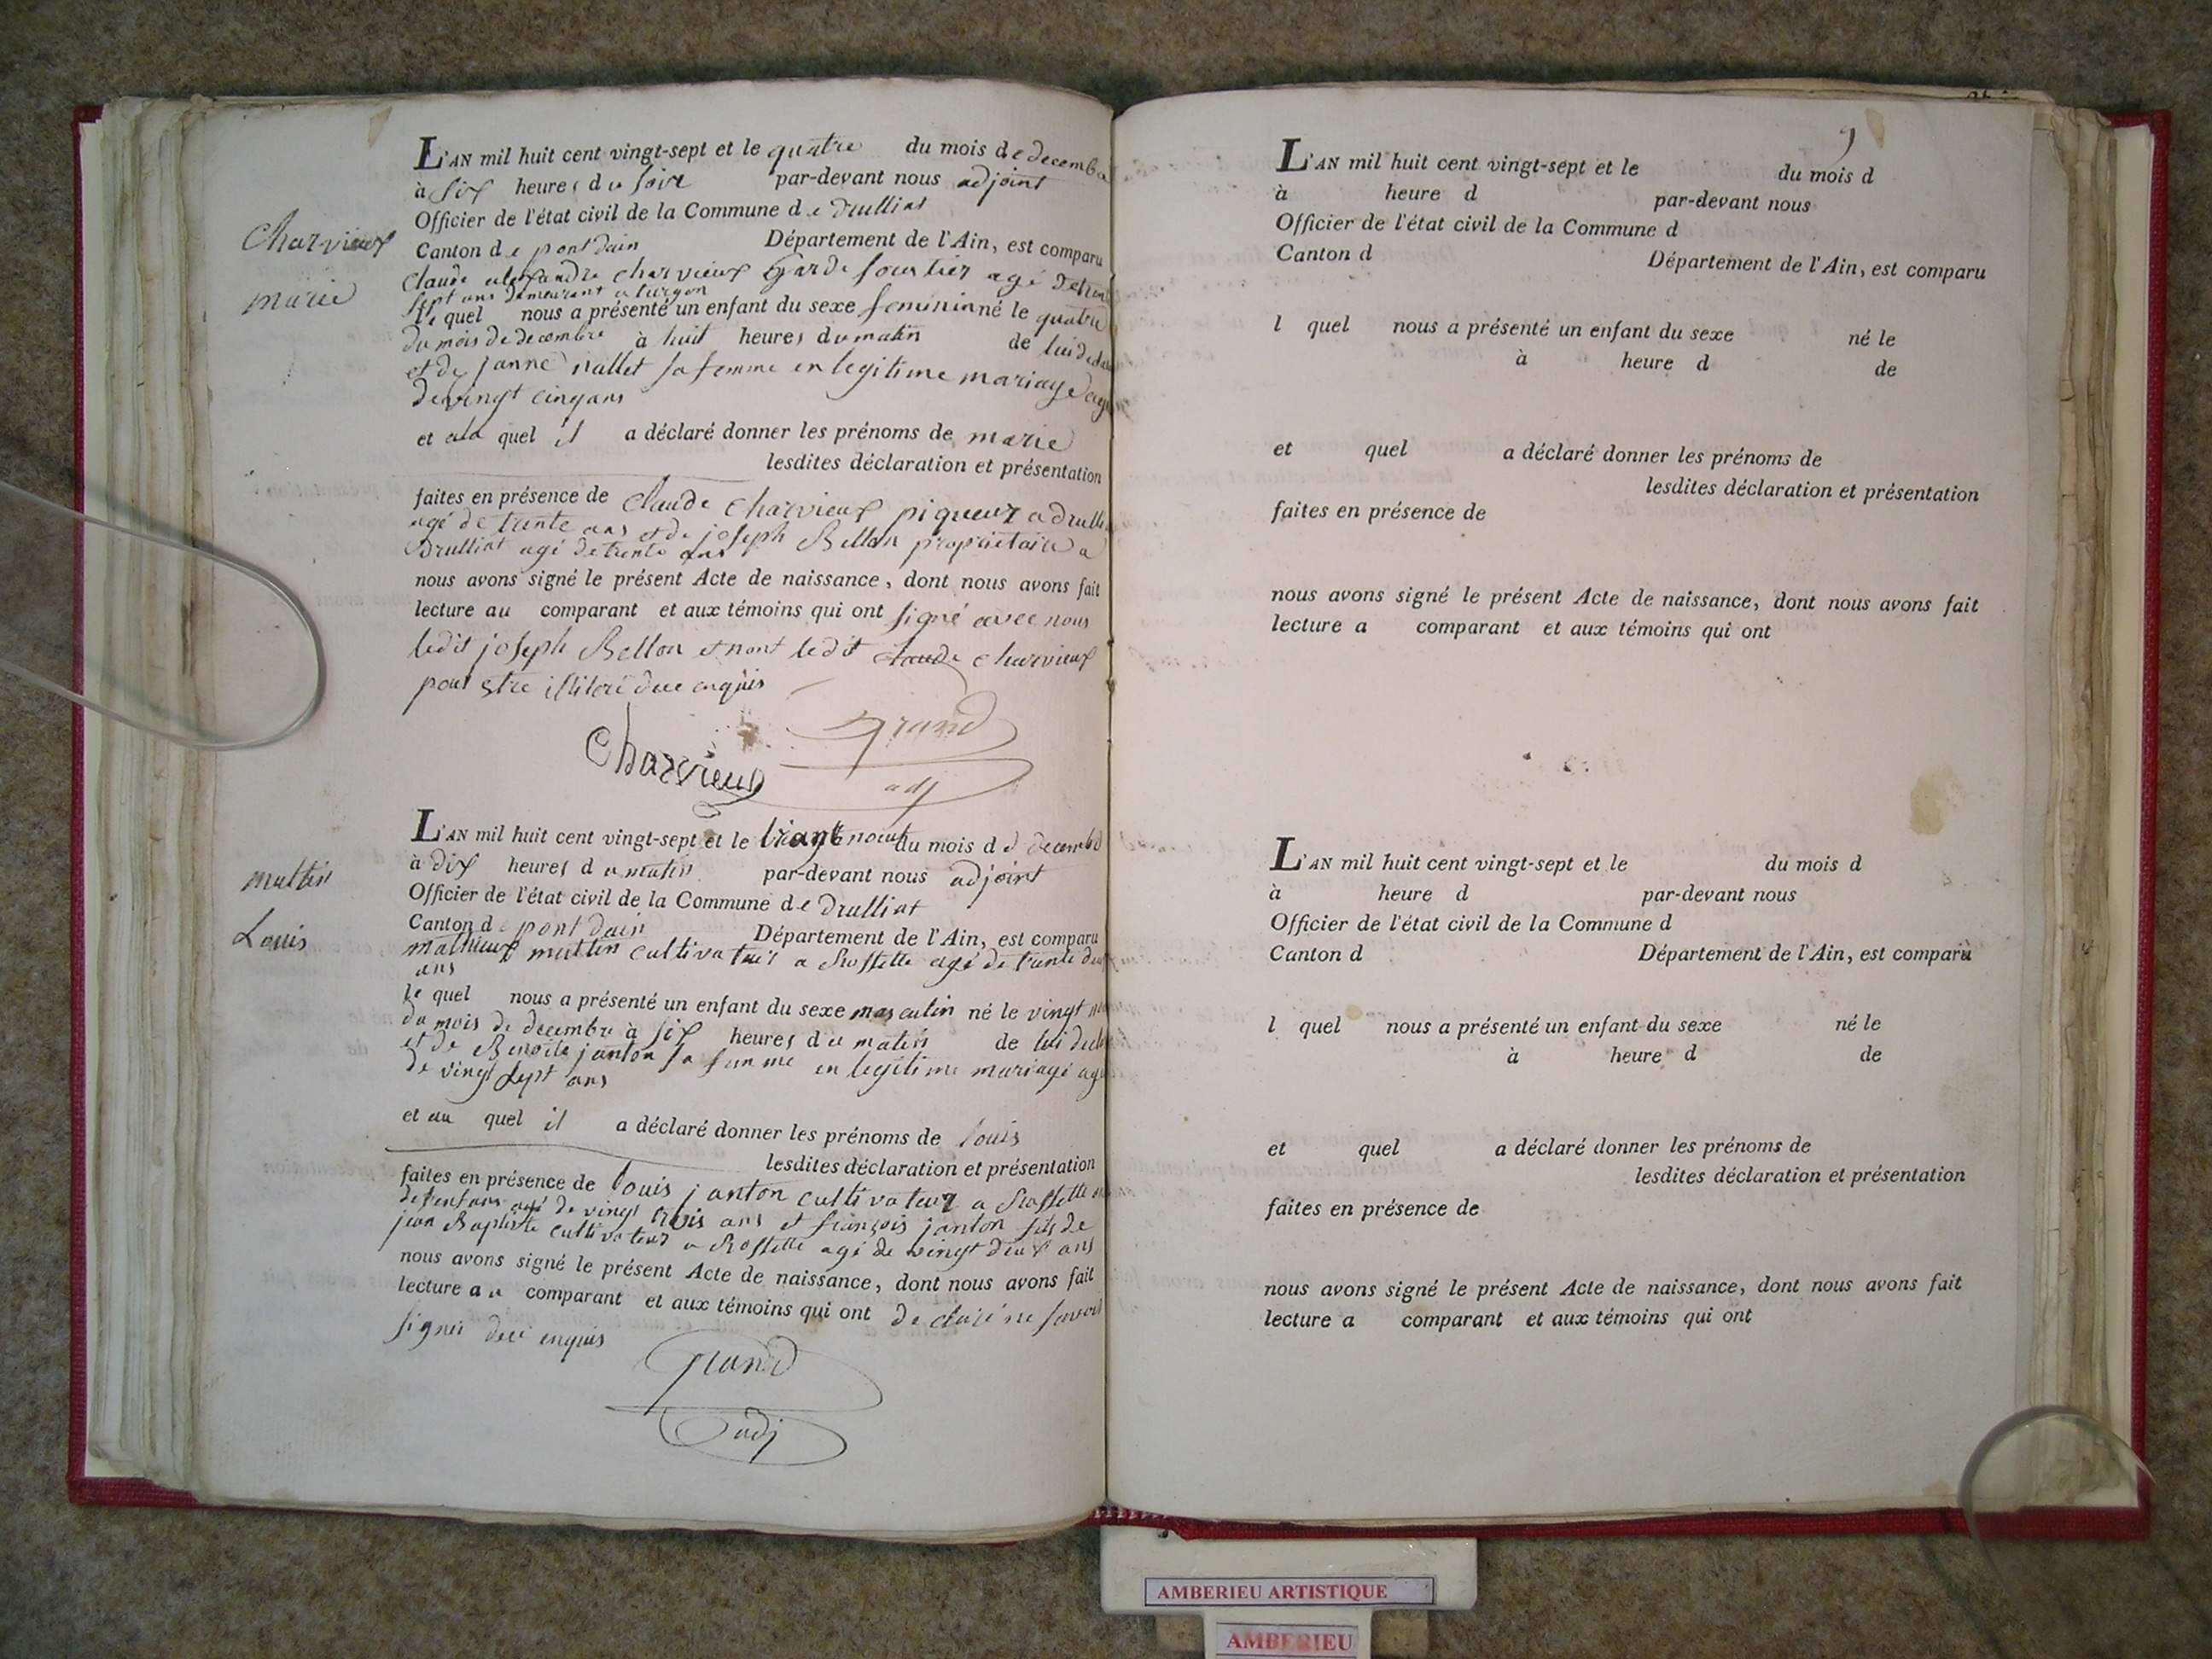 Charvieux
marie
L'AN mil huit cent vingt-sept et le quatre du mois de decembre
à six heures du soire par-devant nous adjoint
Officier de l'état civil de la Commune de Drulliat
Canton de pont dain Département de l'Ain, est comparu
Claude alexandre charvieux garde agé de
sept ans demeurant a turgon
le quel nous a présenté un enfant du sexe feminin né le quatre
du mois de decembre à huit heures du matin de lui
et de janne nallet sa femme en legitime mariage
de vingt cinq ans
et a la quel il a déclaré donner les prénoms de marie
lesdites déclaration et présentation
faites en présence de Claude Charvieux piqueur a
agé de trente ans et de joseph Bellon propriétaire a
Drulliat agé de trente ans
nous avons signé le présent Acte de naissance, dont nous avons fait
lecture au comparant et aux témoins qui ont signé avec nous
ledit joseph Bellon et nont ledit claude charvieux
pour estre enquis
Charvieux
Grand
adj
muttin
Louis
L'AN mil huit cent vingt-sept et le vingt neuf du mois de
à dix heures du matin par-devant nous adjoint
Officier de l'état civil de la Commune de Drulliat
Canton de pont dain Département de l'Ain, est comparu
mathieux muttin cultivateur a Rossette agé de trente
ans
le quel nous a présenté un enfant du sexe masculin né le vingt
du mois de decembre à six heures du matin de lui
et de Benoite janton sa femme en legitime mariage
de vingt sept ans
et au quel il a déclaré donner les prénoms de louis
lesdites déclaration et présentation
faites en présence de louis janton cultivateur a Rossette
agé de vingt trois ans et françois janton fils de
jean Baptiste cultivateur a Rossette agé de vingt deux ans
nous avons signé le présent Acte de naissance, dont nous avons fait
lecture au comparant et aux témoins qui ont declaré ne savoir
signer enquis
Grand
adj
9
L'AN mil huit cent vingt-sept et le du mois d
à heure d par-devant nous
Officier de l'état civil de la Commune d
Canton d Département de l'Ain, est comparu
l quel nous a présenté un enfant du sexe né le
à heure d de
et quel a déclaré donner les prénoms de
lesdites déclaration et présentation
faites en présence de
nous avons signé le présent Acte de naissance, dont nous avons fait
lecture a comparant et aux témoins qui ont
L'AN mil huit cent vingt-sept et le du mois d
à heure d par-devant nous
Officier de l'état civil de la Commune d
Canton d Département de l'Ain, est comparu
l quel nous a présenté un enfant du sexe né le
à heure d de
et quel a déclaré donner les prénoms de
lesdites déclaration et présentation
faites en présence de
nous avons signé le présent Acte de naissance, dont nous avons fait
lecture a comparant et aux témoins qui ont
AMBERIEU ARTISTIQUE
AMBERIEU